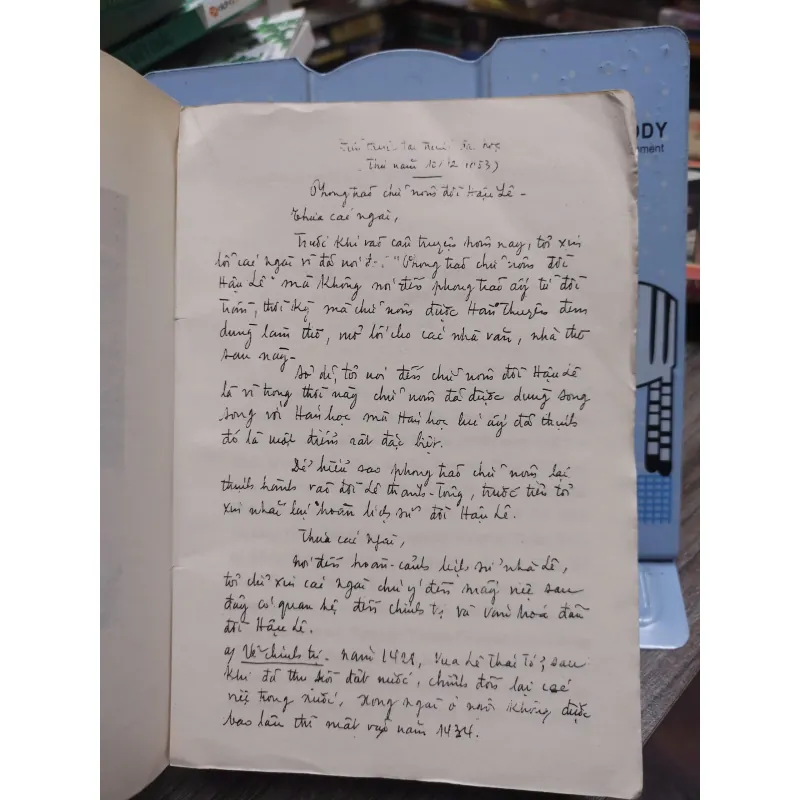 (Thứ năm 10/12 1953)
Phong trào chữ nôm đời Hậu Lê -
Thưa các ngài,
Trước khi vào câu truyện hôm nay, tôi xin
lỗi các ngài vì đã nói đến "Phong trào chữ nôm đời
Hậu Lê" mà không nói đến phong trào ấy từ đời
Trần, thời kỳ mà chữ nôm được Hàn Thuyên đem
dùng làm thơ, mở lối cho các nhà văn, nhà thơ
sau này -
Sở dĩ, tôi nói đến chữ nôm đời Hậu Lê
là vì trong thời này chữ nôm đã được dùng song
song với Hán học mà Hán học lúc ấy đã thịnh
đó là một điểm rất đặc biệt.
Để hiểu sao phong trào chữ nôm lại
thịnh hành vào đời Lê Thánh-Tông, trước tiên tôi
xin nhắc lại hoàn lịch sử đời Hậu Lê.
Thưa các ngài,
Nói đến hoàn-cảnh lịch sử nhà Lê,
tôi chỉ xin các ngài chú ý đến mấy việc sau
đây có quan hệ đến chính trị và văn hoá đầu
đời Hậu Lê.
a) Về chính trị - năm 1428, Vua Lê Thái Tổ, sau
khi đã thu hồi đất nước, chỉnh đốn lại các
việc trong nước, song ngài ở ngôi không được
bao lâu thì mất vào năm 1434.
ODY